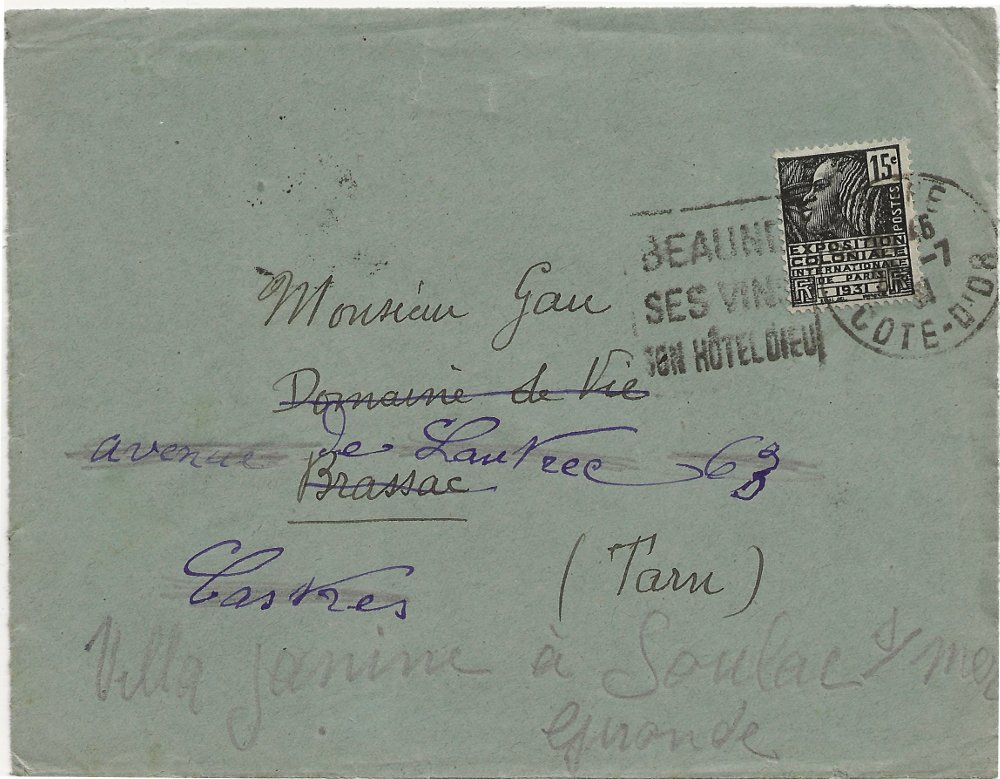 15c
POSTES
EXPOSITION
COLONIALE
INTERNATIONALE
DE PARIS
1931
BEAUNE
SES VINS
SON HÔTEL DIEU
COTE-D'OR
Monsieur Gau
Domaine de Vic
avenue de Lautrec 63
Brassac
Castres
(Tarn)
Villa Janine à Soulac s/ mer
Gironde